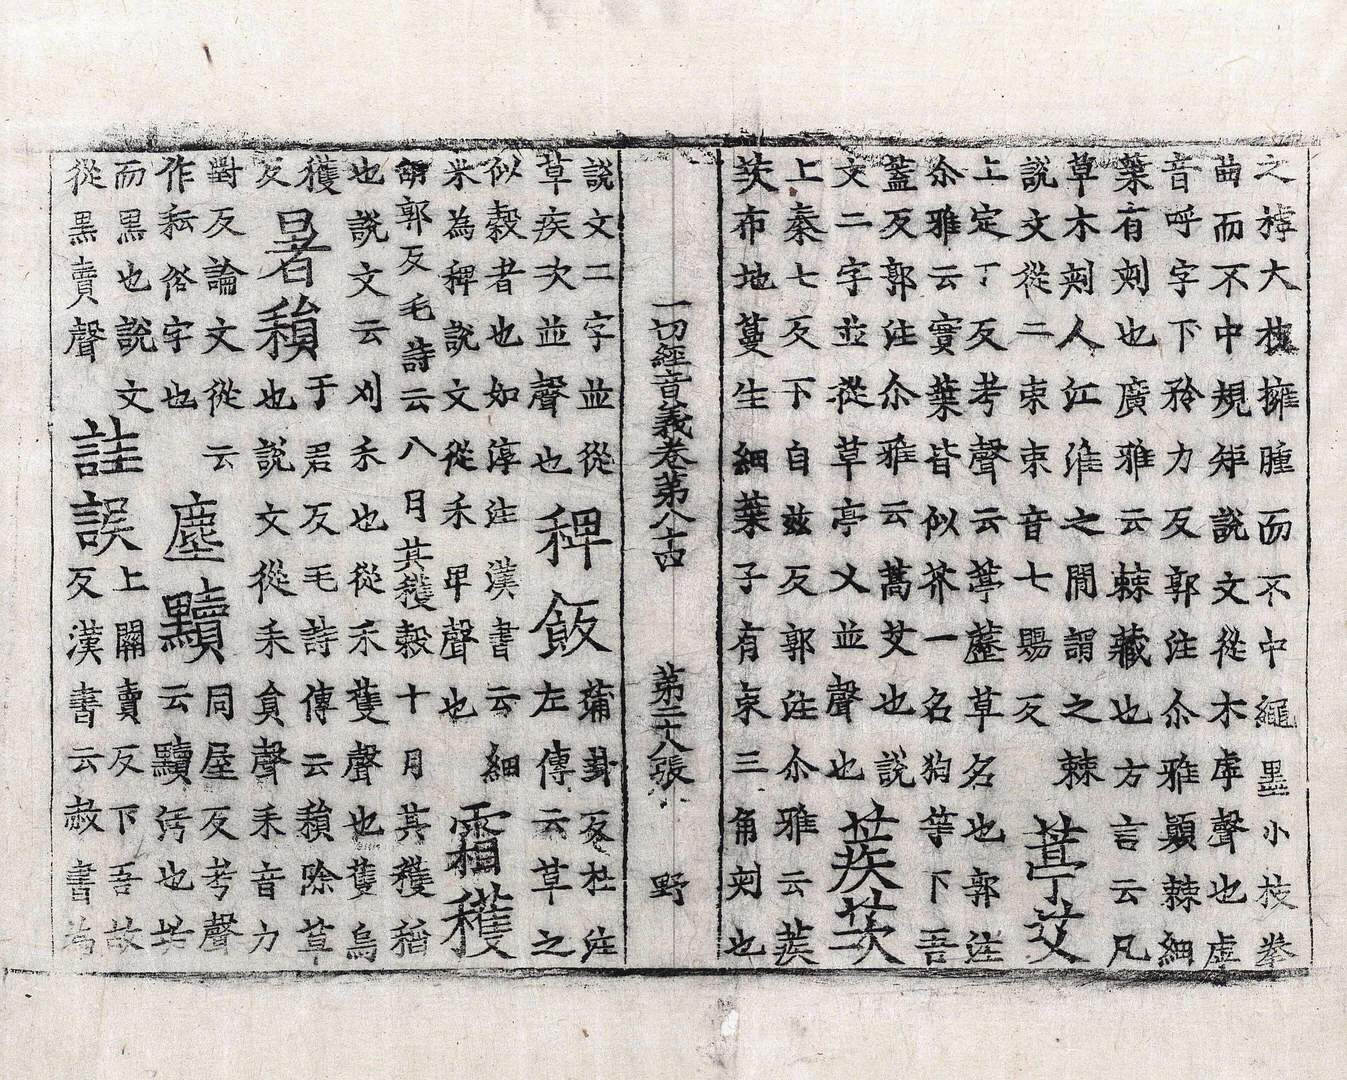 之樗大擁腫而不中繩墨小枝拳
曲而不中規矩說文從木虖聲也虖
音呼字下矜力反郭注尒雅顈棘細
葉有刾也廣雅云棘蔵也方言云凡
草木刾人江淮之間謂之棘
說文從二朿朿音七賜反
葶艾
上定丁反考聲云葶藶草名也郭注
尒雅云實葉皆似芥一名狗等下吾
蓋反郭注尒雅云蒿艾也說
文二字並從草亭乂並聲也
蒺茨
上秦七反下自茲反郭注尒雅云蒺
茨布地蔓生細葉子有朿三角刾也
一切經音義卷第八十四 第二十八張 野
說文二字並從
草疾次並聲也
稗飯
蒲卦反杜注
左傳云草之
似穀者也如淳注漢書云細
米為稗說文從禾卑聲也
霜穫
胡郭反毛詩云八月其穫穀十月其穫稻
也說文云刈禾也從禾蒦聲也蒦烏
穫
反
暑䅼
于君反毛詩傳云䅼除草
也說文從耒員聲耒音力
對反論文從云
作耘俗字也
塵黷
同屋反考聲
云黷汚也垢
而黒也說文
從黒賣聲
詿誤
上關賣反下吾故
反漢書云赦書為